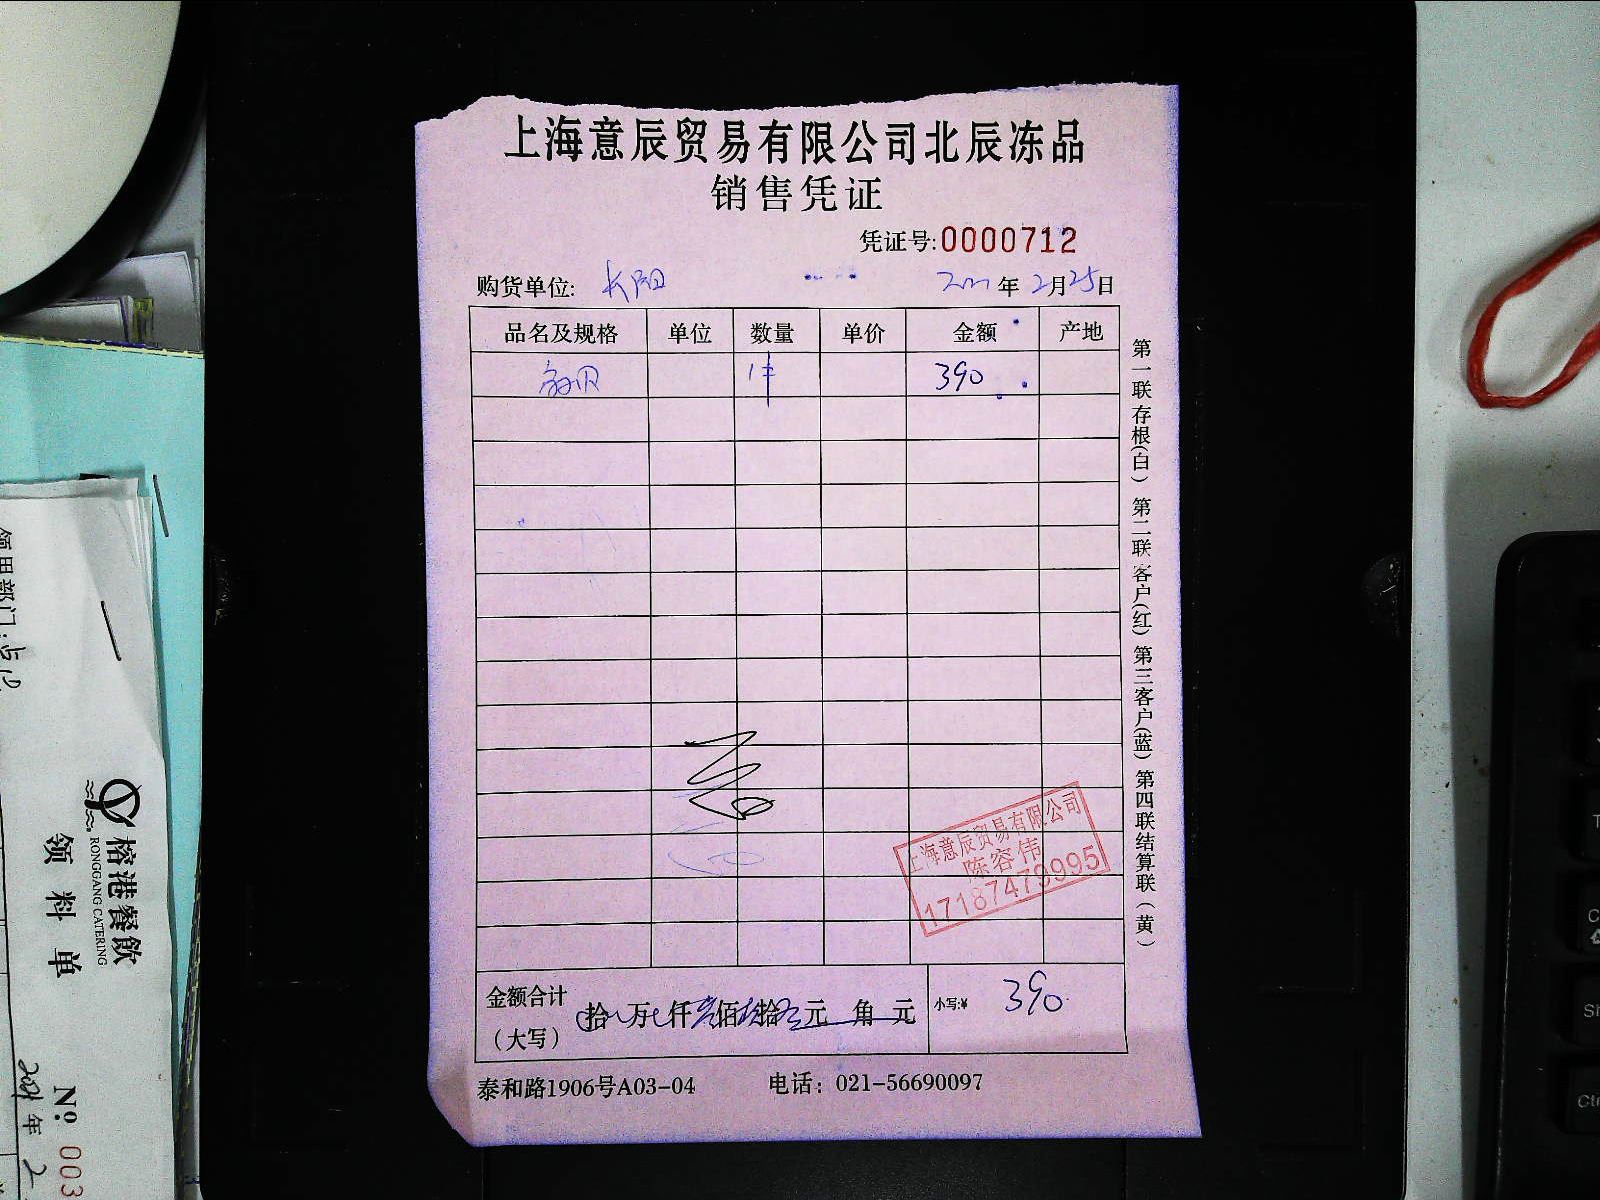 上海意辰贸易有限公司北辰冻品
销售凭证
凭证号:0000712
购货单位: 长阳 年 2月25日
品名及规格 单位 数量 单价 金额 产地
1件 390
第一联存根(白) 第二联客户(红) 第三客户(蓝) 第四联结算联(黄)
上海意辰贸易有限公司
陈容伟
17187479995
金额合计
(大写)
拾 万 仟 佰 拾 元 角 元
小写:¥ 390
泰和路1906号A03-04 电话: 021-56690097
领用部门:
榕港餐飲
RONGGANG CATERING
领料单
№ 003
2021年 2